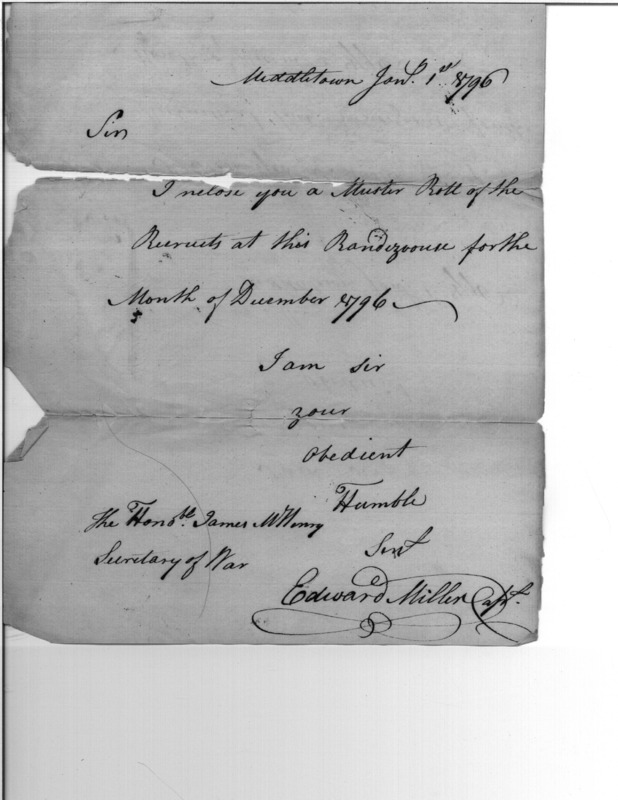 Middletown Janr. 1st 1796
Sir
I nclose you a Muster Roll of the
Recruits at this Randezvouse for the
Month of December 1796
I am sir
your
Obedient
Humble
Servt
The Honoble. James McHenry
Secretary of War
Edward Miller Capt.